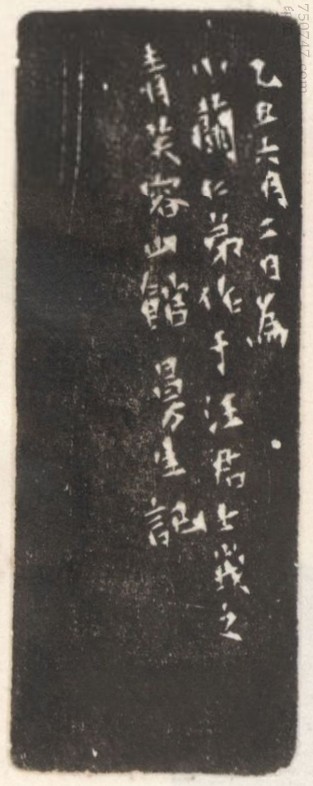 乙丑六月二日為
小蘭仁弟作于汪君士之
青芙容山館 曼生記
750747.com